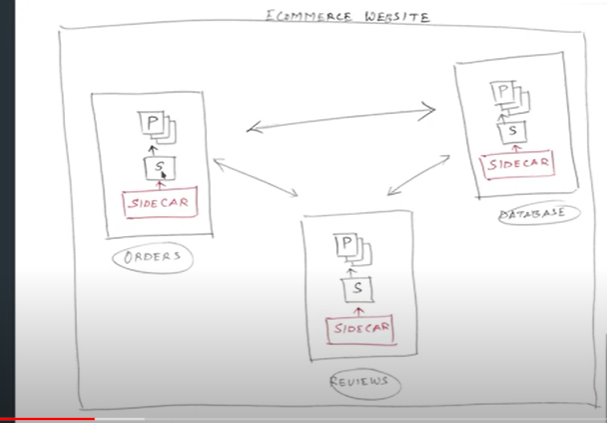 ECOMMERCE WEBSITE
P
S
SIDECAR
ORDERS
P
S
SIDECAR
DATABASE
P
S
SIDECAR
REVIEWS